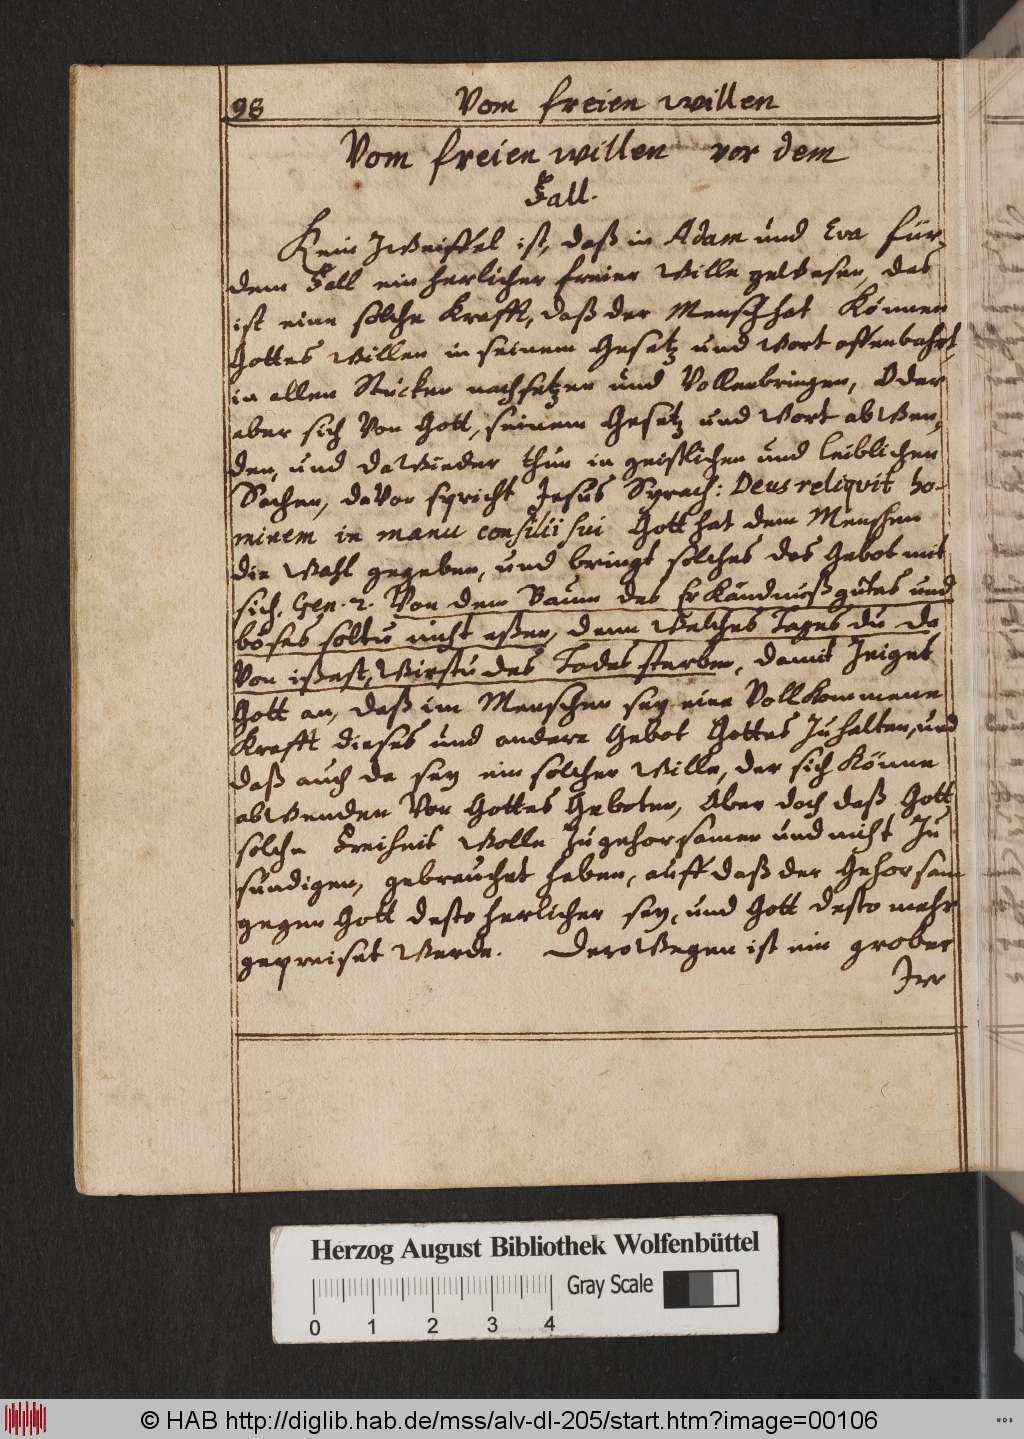 98
Vom freien willen
Vom freien willen vor dem
Fall.
Kein Zweiffel ist, daß in Adam und Eva für
dem Fall ein herlicher freier Wille gewesen, das
ist eine solche Krafft, daß der Mensch hat Können
Gottes Willen in seinem Gesetz und Wort offenbahrt,
in allen Stücken nachsetzen und Vollenbringen, Oder
aber sich Von Gott, seinem Gesetz und Wort abwen,
den, und dawieder thun in geistlichen und leiblichen
Sachen, daVon spricht Jesus Syrach: Deus reliqvit ho-
minem in manu consilii sui Gott hat dem Menschen
die Wahl gegeben, und bringt solches das Gebot mit
sich. Gen. 2. Von dem Baum des Erkändnuß gutes und
böses soltu nicht essen, denn Welches Tages du da
Von issest, Wirstu des Todes sterben, damit Zeiget
Gott an, daß im Menschen sey eine Vollkommene
Krafft dieses und andere Gebot Gottes Zu halten, und
daß auch da sey ein solcher Wille, der sich Könne
abwenden Von Gottes Geboten, Aber doch daß Gott
solche Freiheit Wolle Zu gehorsamen und nicht Zu
sündigen, gebrauchet haben, auff daß der Gehorsam
gegen Gott desto herlicher sey, und Gott desto mehr
gepreiset Werde. Derowegen ist ein grober
Irr
Herzog August Bibliothek Wolfenbüttel
Gray Scale
0 1 2 3 4
© HAB http://diglib.hab.de/mss/alv-dl-205/start.htm?image=00106